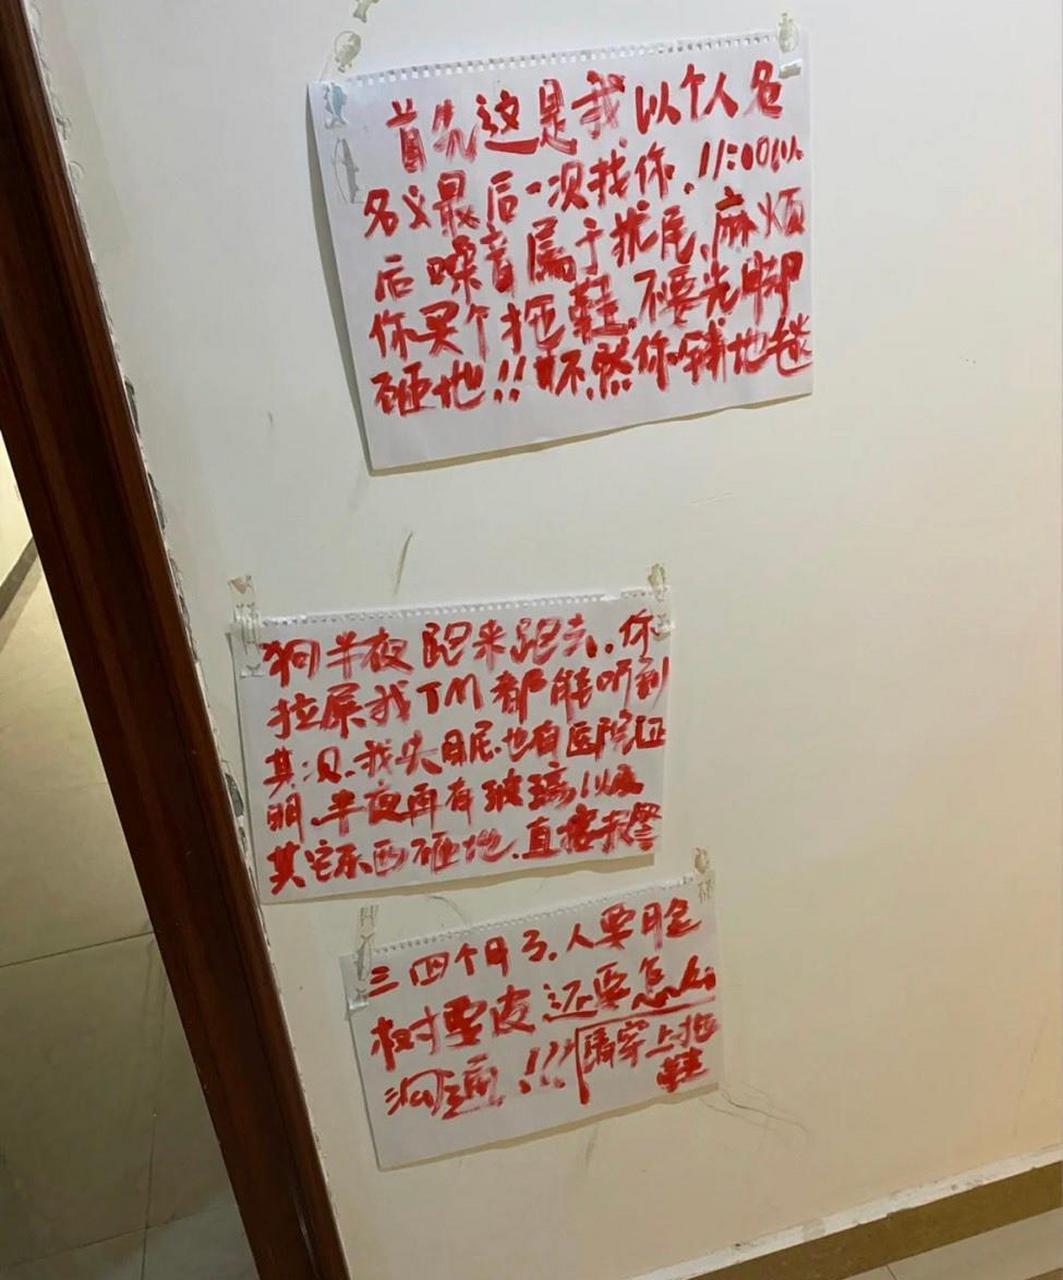 首先这是我以个人名
名义最后一次找你.11:00以
后噪音属于扰尾、麻烦
你买个拖鞋.不要光脚
砸地!!不然你铺地毯
狗半夜跑来跑去.你
拉屎我TM都能听到
其次.我失眠.也有医院证
明.半夜再有玻璃以及
其它东西砸地.直接报警
三四个月了.人要脸
树要皮 还要怎么
沟通!!! 请穿上拖
鞋